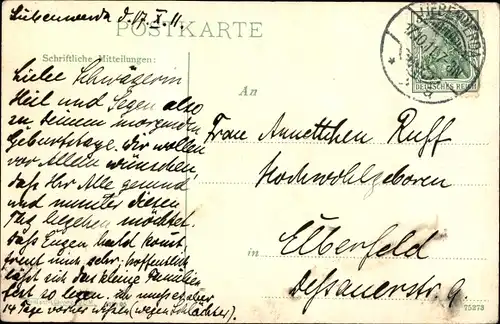 Liebenwerda d. 17. X. 11.
POSTKARTE
Schriftliche Mitteilungen:
Liebe Schwägerin
Heil und Segen also
zu Deinem morgenden
Geburtstage. Wir wollen
vor Allem wünschen,
daß Ihr Alle gesund
und munter diesen
Tag begehen möchtet.
Daß Eugen bald komt,
freut mich sehr; hoffentlich
läßt sich das kleine Familien
fest so legen. Ich muß es aber
14 Tage vorher wissen (wegen Schlächter).
An
Frau Annettchen Ruff
Hochwohlgeboren
in Elberfeld
Dessauerstr. 9.
LIEBENWERDA
17.10.11
DEUTSCHES REICH
75273